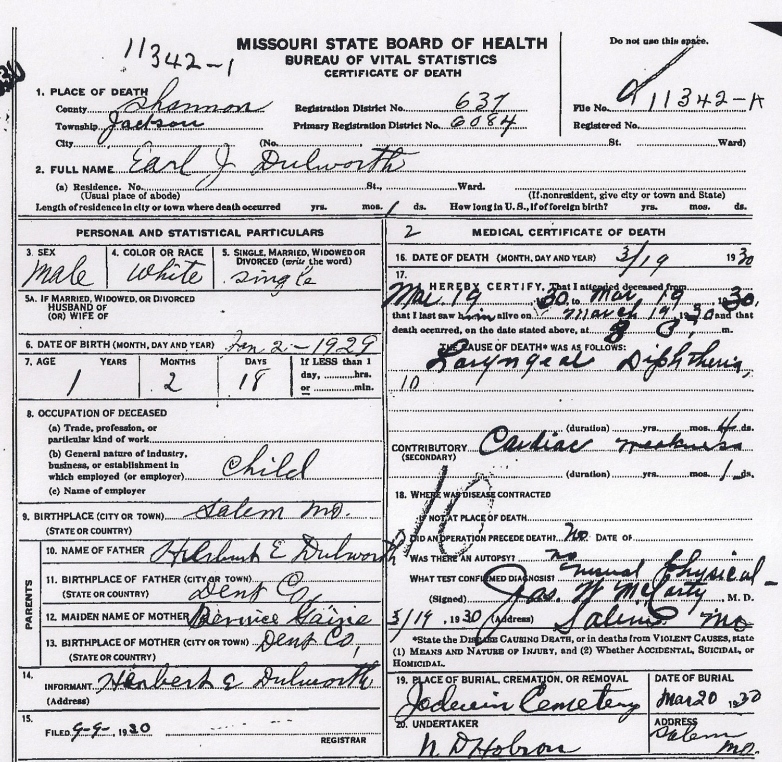 11342-1
MISSOURI STATE BOARD OF HEALTH
BUREAU OF VITAL STATISTICS
CERTIFICATE OF DEATH
Do not use this space.
1. PLACE OF DEATH
County Shannon Registration District No. 637 File No. 11342-A
Township Jackson Primary Registration District No. 6084 Registered No.
City (No. St. Ward)
2. FULL NAME Earl J Dulworth
(a) Residence. No. St., Ward.
(Usual place of abode) (If nonresident, give city or town and State)
Length of residence in city or town where death occurred yrs. mos. 1 ds. How long in U.S., if of foreign birth? yrs. mos. ds.
PERSONAL AND STATISTICAL PARTICULARS
3. SEX
male
4. COLOR OR RACE
white
5. SINGLE, MARRIED, WIDOWED OR DIVORCED (write the word)
single
5A. IF MARRIED, WIDOWED, OR DIVORCED
HUSBAND OF
(OR) WIFE OF
6. DATE OF BIRTH (MONTH, DAY AND YEAR) Jan 2-1929
7. AGE YEARS MONTHS DAYS If LESS than 1
1 2 18 day, hrs.
or min.
8. OCCUPATION OF DECEASED
(a) Trade, profession, or
particular kind of work
(b) General nature of industry,
business, or establishment in
which employed (or employer) child
(c) Name of employer
9. BIRTHPLACE (CITY OR TOWN) Salem Mo.
(STATE OR COUNTRY)
PARENTS
10. NAME OF FATHER Herbert E Dulworth
11. BIRTHPLACE OF FATHER (CITY OR TOWN)
(STATE OR COUNTRY) Dent Co,
12. MAIDEN NAME OF MOTHER Bernice
13. BIRTHPLACE OF MOTHER (CITY OR TOWN) Dent Co,
(STATE OR COUNTRY)
14.
INFORMANT Herbert E Dulworth
(Address)
15.
FILED 9-9-, 1930
REGISTRAR
2 MEDICAL CERTIFICATE OF DEATH
16. DATE OF DEATH (MONTH, DAY AND YEAR) 3/19 1930
17.
I HEREBY CERTIFY, That I attended deceased from
Mar 19 1930, to Mar 19 1930,
that I last saw him alive on March 19, 1930 and that
death occurred, on the date stated above, at 8 m.
THE CAUSE OF DEATH* WAS AS FOLLOWS:
Laryngeal Diphtheria,
10
(duration) yrs. mos. 4 ds.
CONTRIBUTORY Cardiac weakness
(SECONDARY)
(duration) yrs. mos. 1 ds.
10
18. WHERE WAS DISEASE CONTRACTED
IF NOT AT PLACE OF DEATH
DID AN OPERATION PRECEDE DEATH? no DATE OF
WAS THERE AN AUTOPSY? no
WHAT TEST CONFIRMED DIAGNOSIS? usual physical-
(Signed) Jas. W McCarty M. D.
3/19, 1930 (Address) Salem Mo
*State the DISEASE CAUSING DEATH, or in deaths from VIOLENT CAUSES, state
(1) MEANS AND NATURE OF INJURY, and (2) Whether ACCIDENTAL, SUICIDAL, or
HOMICIDAL.
19. PLACE OF BURIAL, CREMATION, OR REMOVAL
Cemetery
DATE OF BURIAL
Mar 20 1930
20. UNDERTAKER
N D Hobson
ADDRESS
Salem Mo.